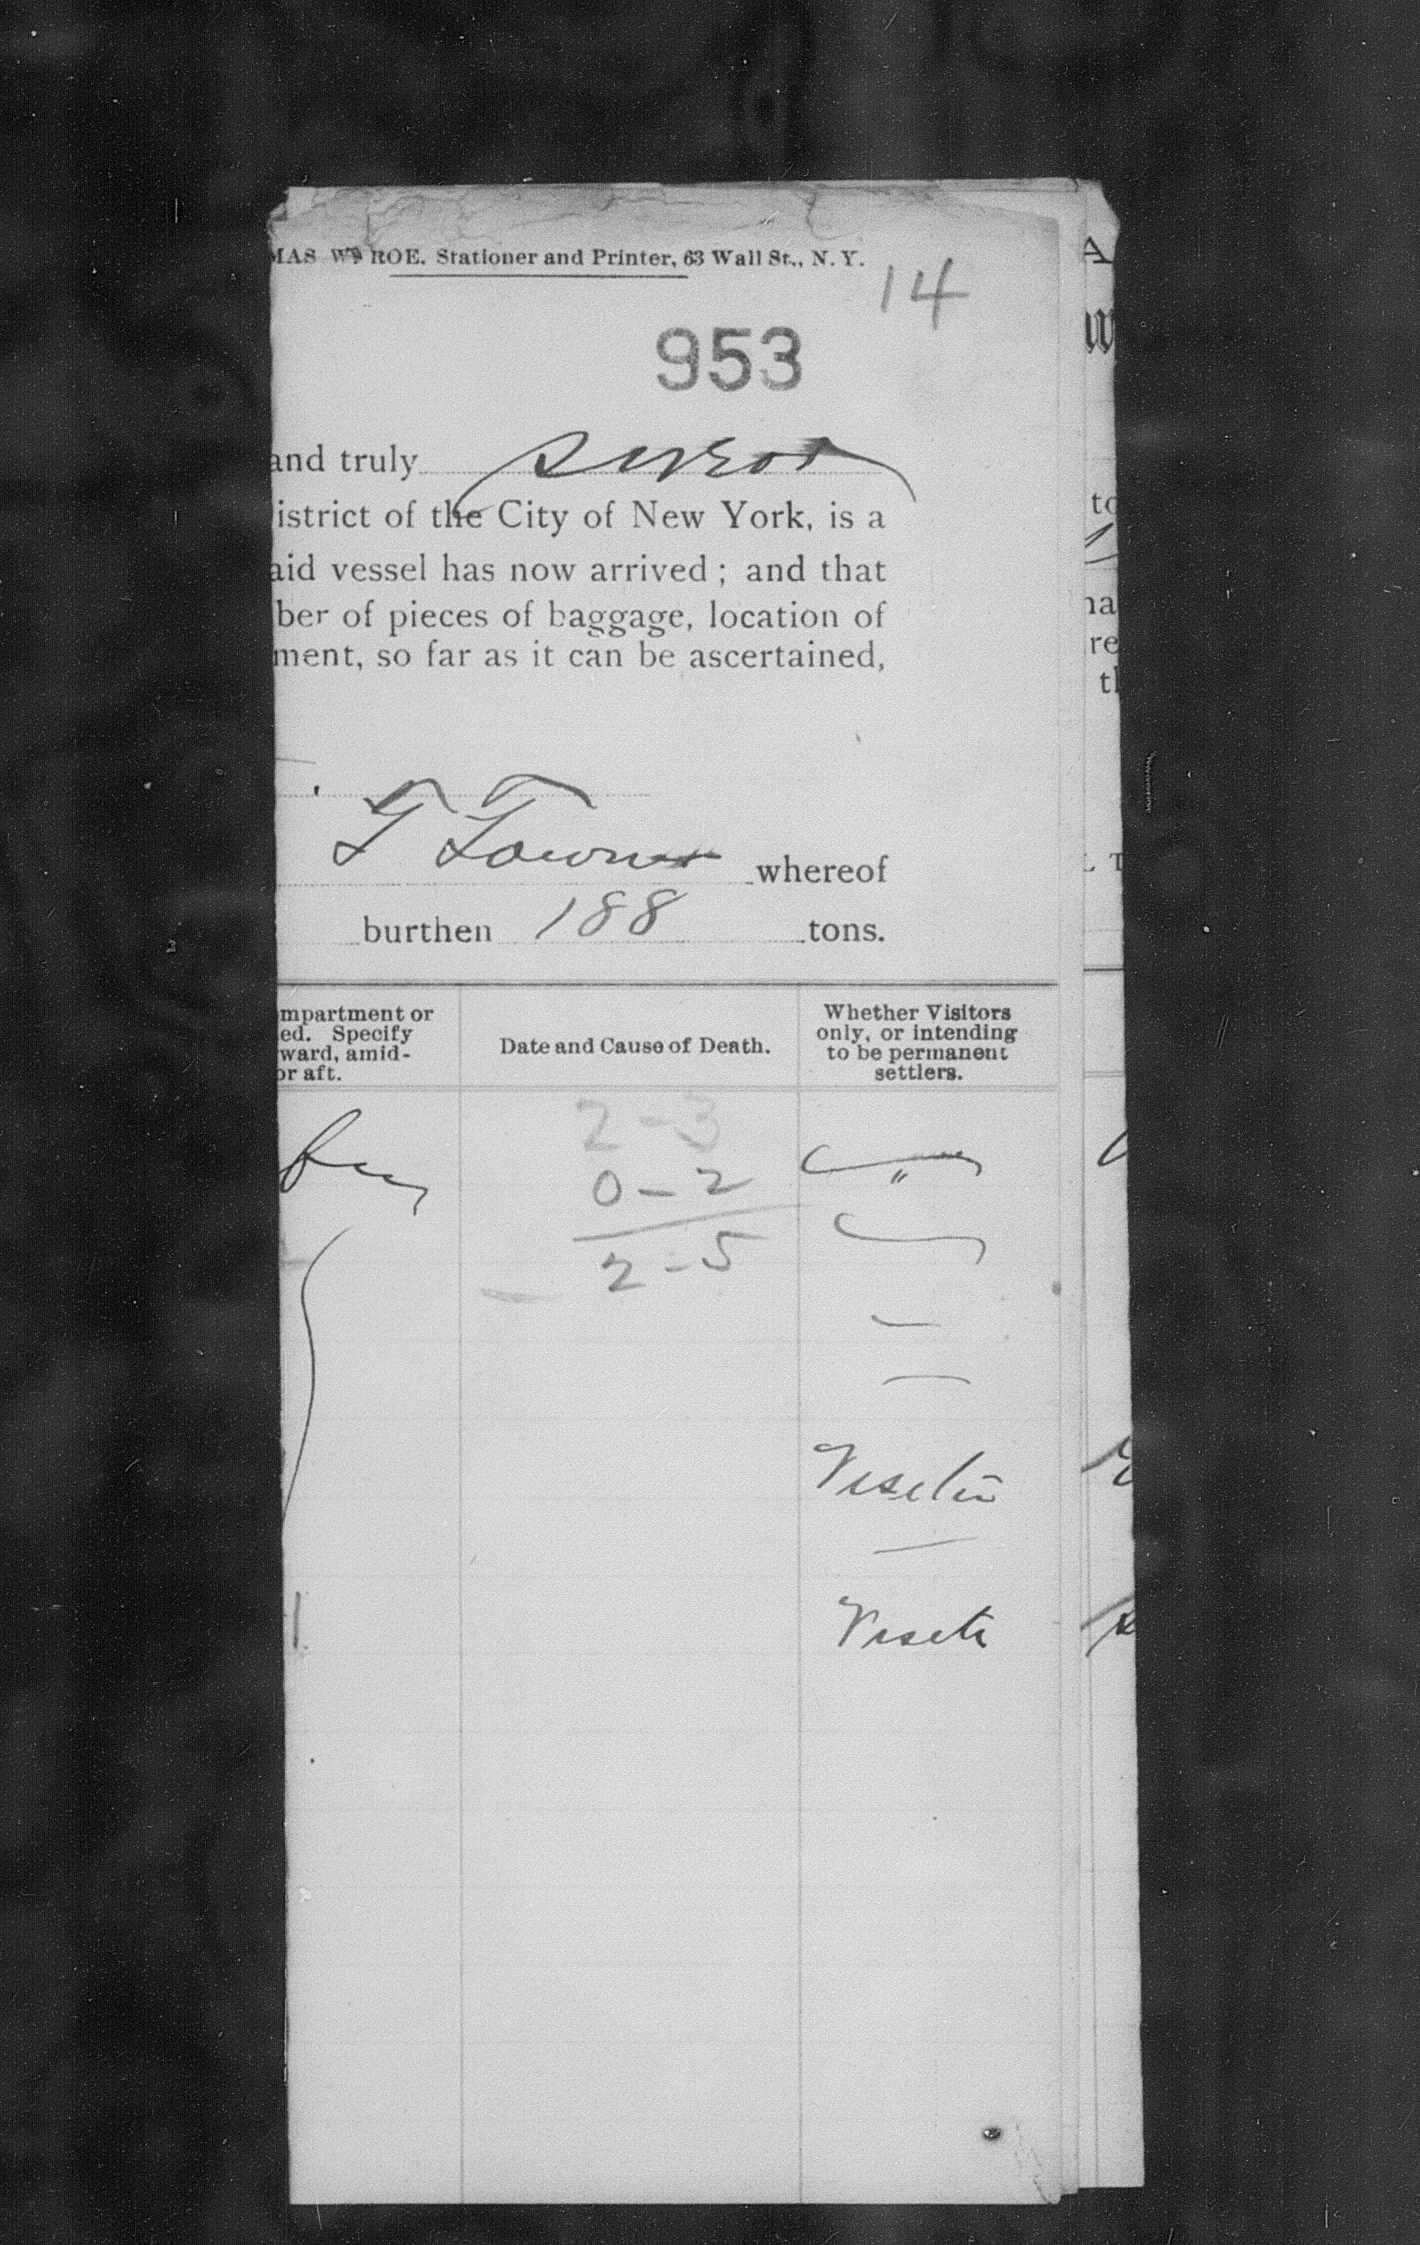 MAS W. ROE, Stationer and Printer, 63 Wall St., N. Y.
14
953
and truly
istrict of the City of New York, is a
aid vessel has now arrived; and that
ber of pieces of baggage, location of
ment, so far as it can be ascertained,
whereof
burthen 188 tons.
mpartment or
ed. Specify
ward, amid-
or aft.
Date and Cause of Death.
Whether Visitors
only, or intending
to be permanent
settlers.
2-3
0-2
2-5
A
w
to
ha
re
th
L T